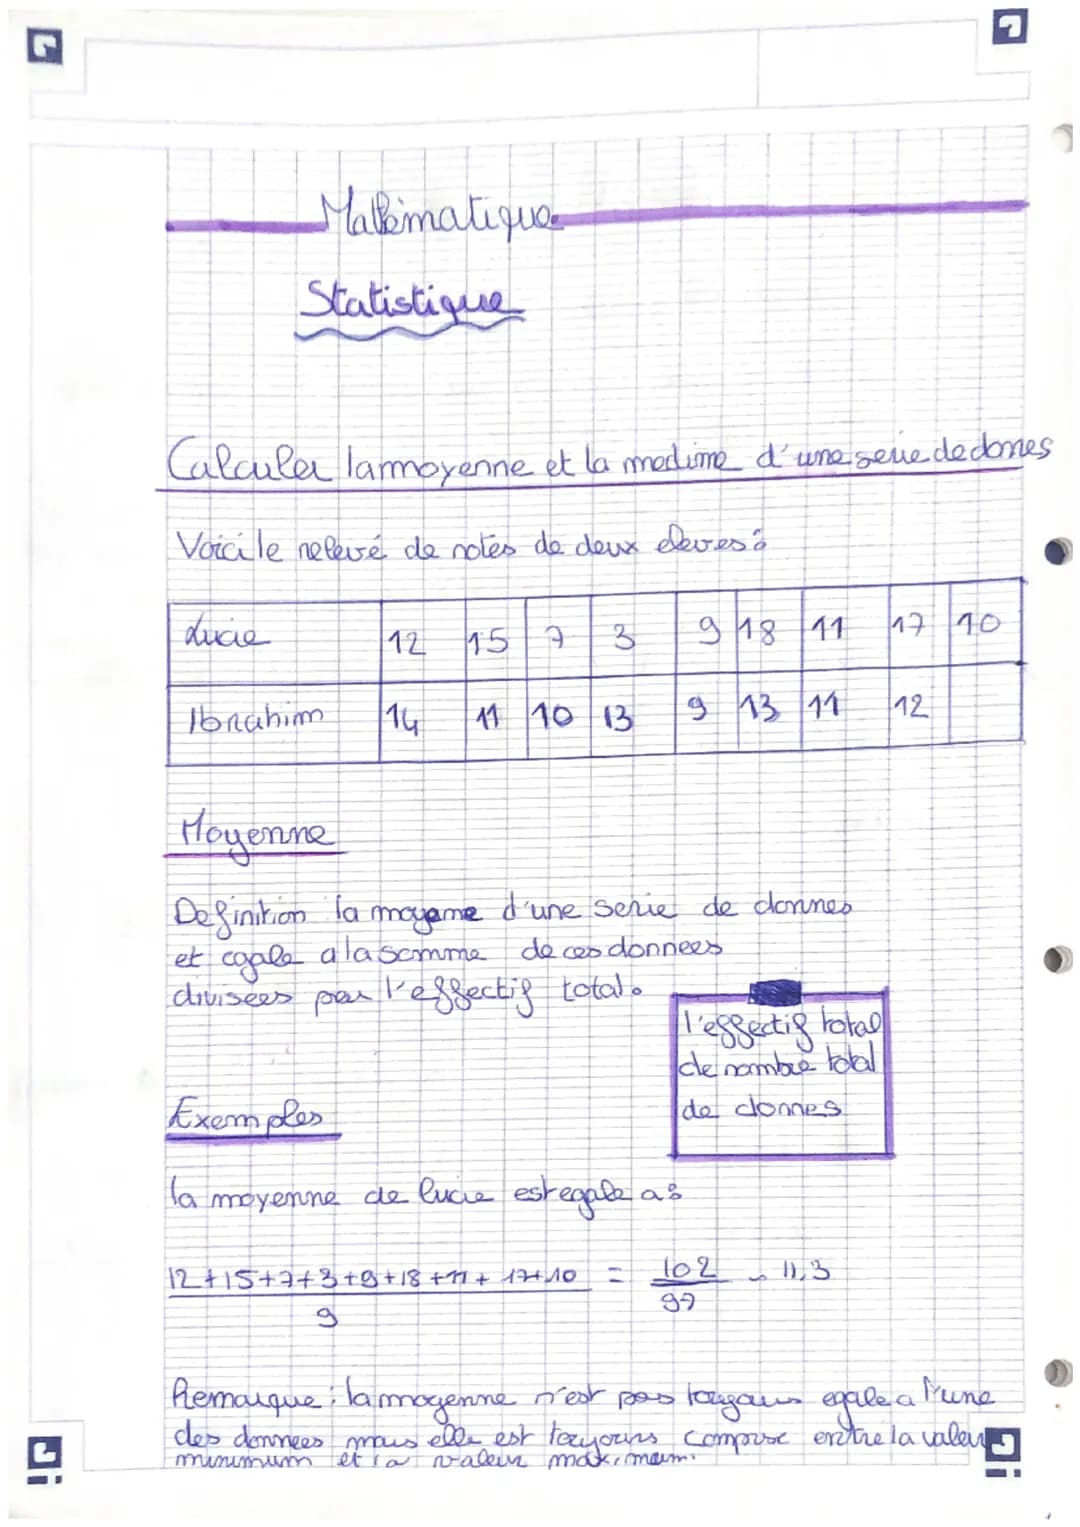 Mathématique
Statistique
Calculer la moyenne et la medime d'une serie de donnes
Voici le relevé de notes de deux eleves :
Lucie 12 15 7 3 9 18 11 17 10
Ibrahim 14 11 10 13 9 13 11 12
Moyenne
Definition la moyenne d'une serie de donnes
et egale a la somme de ces donnees
divisees par l'effectif total.
l'effectif total
de nombre total
de donnes
Exemples
la moyenne de lucie est egale a :
12+15+7+3+9+18+11+17+10 = 102 ~ 11,3
9 99
Remarque : la moyenne n'est pas toujours egale a l'une
des donnees mais elle est toujours comprise entre la valeur
minimum et la valeur maximum.